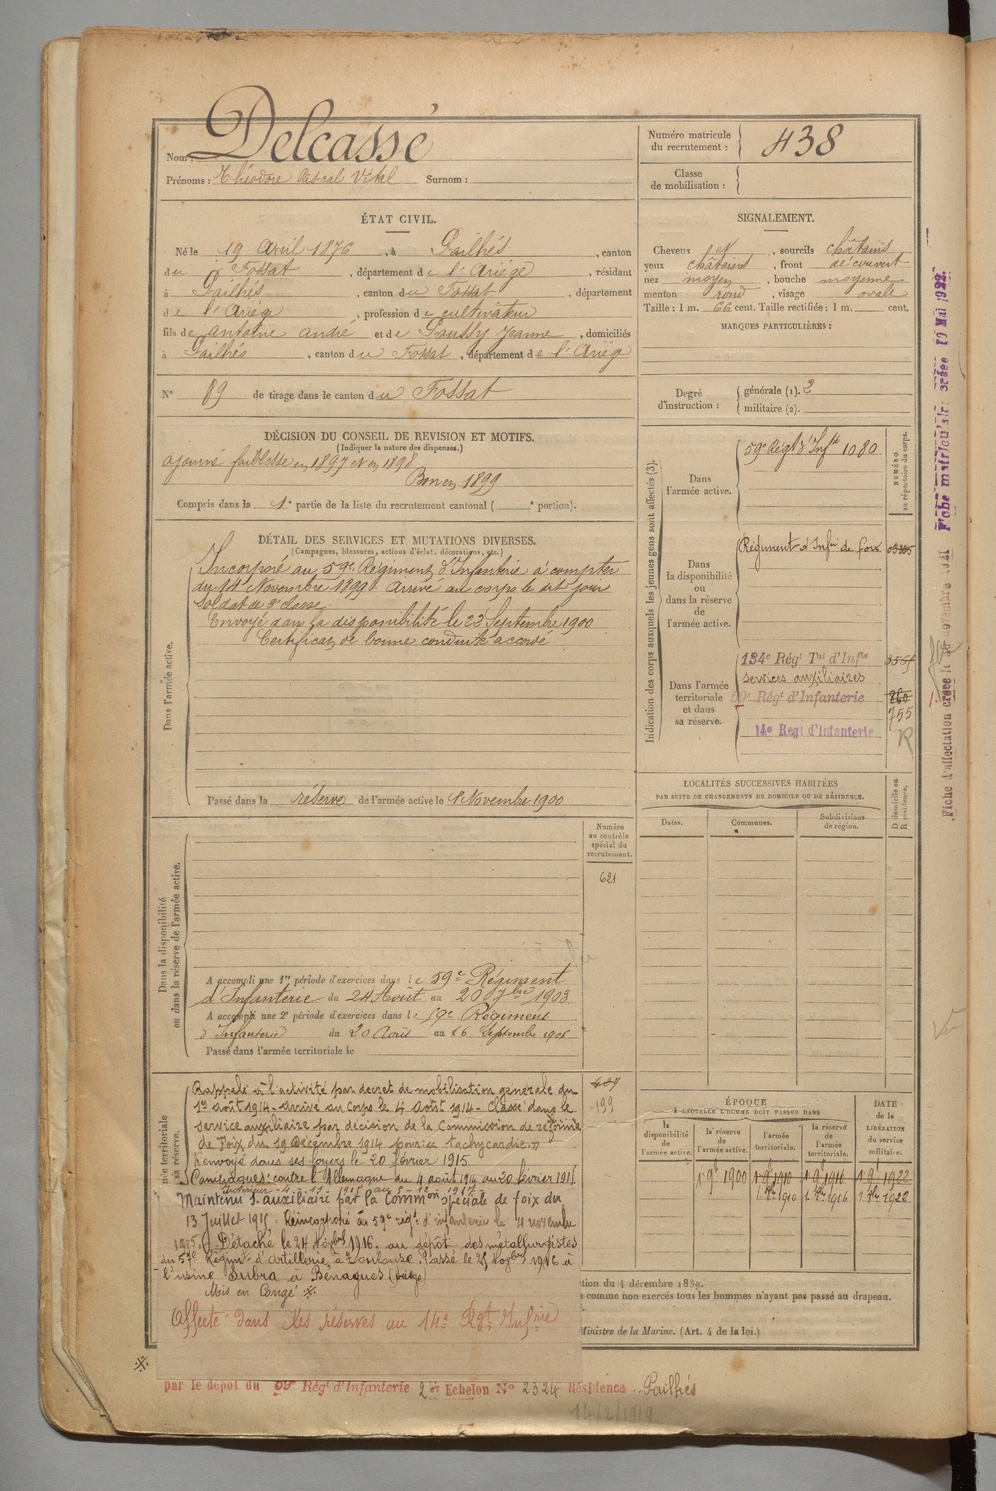 Nom : Delcassé
Prénoms : Théodore Pascal Vital Surnom :
Numéro matricule du recrutement : 438
Classe de mobilisation :
ÉTAT CIVIL.
Né le 19 Avril 1876, à Pailhés, canton
du Fossat, département de l'Ariége, résidant
à Pailhés, canton du Fossat, département
de l'Ariége, profession de cultivateur
fils de antoine andré et de Saussy Jeanne, domiciliés
à Pailhés, canton du Fossat, département de l'Ariége
N° 89 de tirage dans le canton du Fossat
SIGNALEMENT.
Cheveux et, sourcils châtains
yeux châtains, front découvert
nez moyen, bouche moyenne
menton rond, visage ovale
Taille : 1 m. 66 cent. Taille rectifiée : 1 m. cent.
MARQUES PARTICULIÈRES :
Degré d'instruction : générale (1). 2
militaire (2).
DÉCISION DU CONSEIL DE REVISION ET MOTIFS.
(Indiquer la nature des dispenses.)
ajourné faiblesse en 1897 et en 1898
Bon en 1899
Compris dans la 1e partie de la liste du recrutement cantonal ( e portion).
DÉTAIL DES SERVICES ET MUTATIONS DIVERSES.
(Campagnes, blessures, actions d'éclat, décorations, etc.)
Dans l'armée active.
Incorporé au 59e Régiment d'Infanterie à compter
du 14 Novembre 1899. Arrivé au corps le dit jour
soldat de 2e classe
Envoyé dans la disponibilité le 23 Septembre 1900
Certificat de bonne conduite accordé
Passé dans la réserve de l'armée active le 1er Novembre 1900
Indication des corps auxquels les jeunes gens sont affectés (3).
NUMÉRO au répertoire du corps.
Dans l'armée active.
59e Régt d'Infie 1080
Dans la disponibilité ou dans la réserve de l'armée active.
Régiment d'Infie de foix
Dans l'armée territoriale et dans sa réserve.
134e Régt Tal d'Infie
services auxiliaires
59e Régt d'Infanterie
755
14e Regt d'Infanterie
R
LOCALITÉS SUCCESSIVES HABITÉES
PAR SUITE DE CHANGEMENTS DE DOMICILE OU DE RÉSIDENCE.
Dates.
Communes.
Subdivisions de région.
D domicile ou R résidence.
Numéro au contrôle spécial du recrutement.
621
Dans la disponibilité ou dans la réserve de l'armée active.
A accompli une 1re période d'exercices dans le 59e Régiment
d'Infanterie du 24 Août au 20 7bre 1903
A accompli une 2e période d'exercices dans le 59e Régiment
d'Infanterie du 20 Août au 16 Septembre 1906
Passé dans l'armée territoriale le
Rappelé à l'activité par decret de mobilisation generale du
1er août 1914 - arrivé au corps le 4 Août 1914 - Classé dans le
service auxiliaire par décision de la Commission de réforme
de Foix du 19 Décembre 1914 pour tachycardie.
Renvoyé dans ses foyers le 20 février 1915
Campagnes : contre l'Allemagne du 4 août 1914 au 20 février 1915
Maintenu s. auxiliaire par la Commion spéciale de foix du
13 Juillet 1915. Réincorporé au 59e régt d'infanterie le 4 novembre
1915. Détaché le 24 Novbre 1916 au dépôt des métallurgistes
du 57e Régimt d'Artillerie à Toulouse. Passé le 25 Novbre 1916 à
l'usine Dubra à Bénagues (Ariége)
Mis en Congé
Affecté dans les réserves au 14e Rgt Infrie
par le dépôt du 59e Régt d'Infanterie 2 er Echelon N° 2324 Résidence Pailhés
14/2/1919
199
ÉPOQUE
À LAQUELLE L'HOMME DOIT PASSER DANS
la disponibilité de l'armée active.
la réserve de l'armée active.
l'armée territoriale.
la réserve de l'armée territoriale.
DATE de la LIBÉRATION du service militaire.
tion du 4 décembre 1889.
comme non exercés tous les hommes n'ayant pas passé au drapeau.
Ministre de la Marine. (Art. 4 de la loi.)
Fiche matriculaire créée 19 Mai 1922